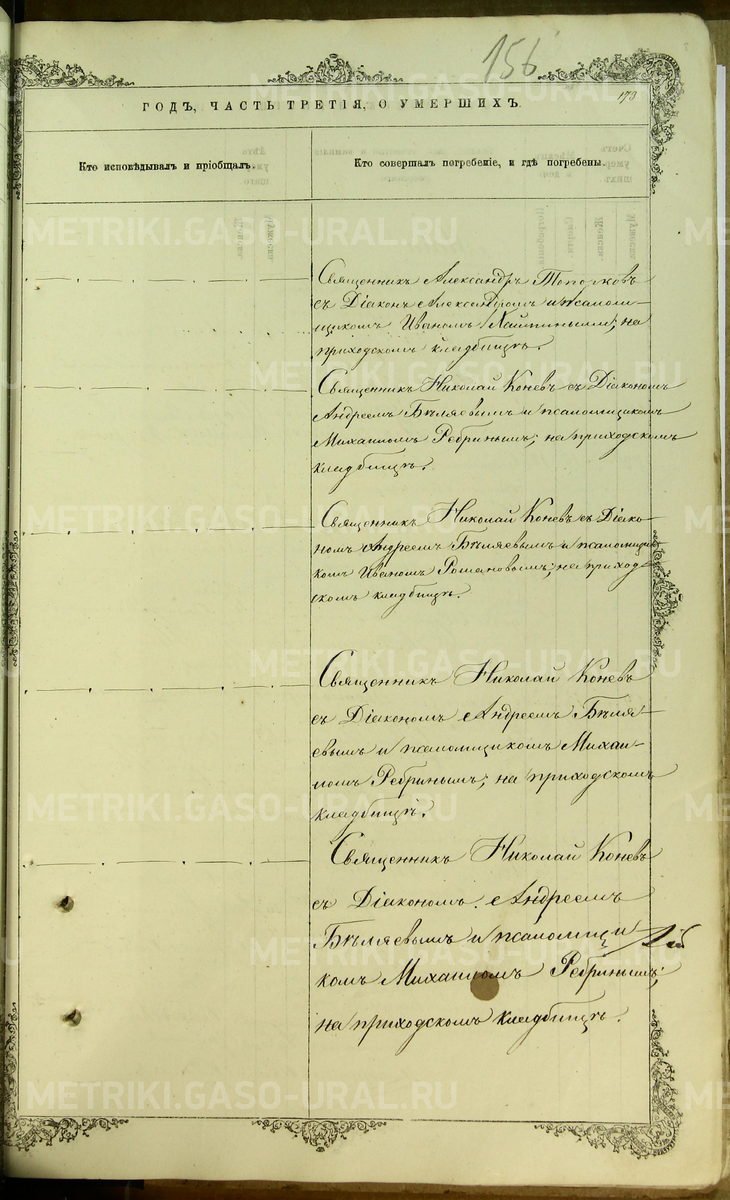 156
178
ГОДЪ, ЧАСТЬ ТРЕТІЯ, О УМЕРШИХЪ.
Кто исповѣдывалъ и пріобщалъ.
Кто совершалъ погребеніе, и гдѣ погребены.
Священникъ Александръ Топорковъ
съ Діакон Александромъ и псалом-
щикомъ Иваномъ на
приходскомъ кладбищѣ.
Священникъ Николай Коневъ съ Діакономъ
Андреемъ Бѣляевымъ и псаломщикомъ
Михаиломъ Ребринымъ; на приходскомъ
кладбищѣ.
Священникъ Николай Коневъ съ Діако-
номъ Андреемъ Бѣляевымъ и псаломщи-
комъ Иваномъ Романовымъ; на приход-
скомъ кладбищѣ.
Священникъ Николай Коневъ
съ Діакономъ Андреемъ Бѣля-
евымъ и псаломщикомъ Михаи-
ломъ Ребринымъ; на приходскомъ
кладбищѣ.
Священникъ Николай Коневъ
съ Діакономъ Андреемъ
Бѣляевымъ и псаломщи-
комъ Михаиломъ Ребринымъ;
на приходскомъ кладбищѣ.
METRIKI.GASO-URAL.RU